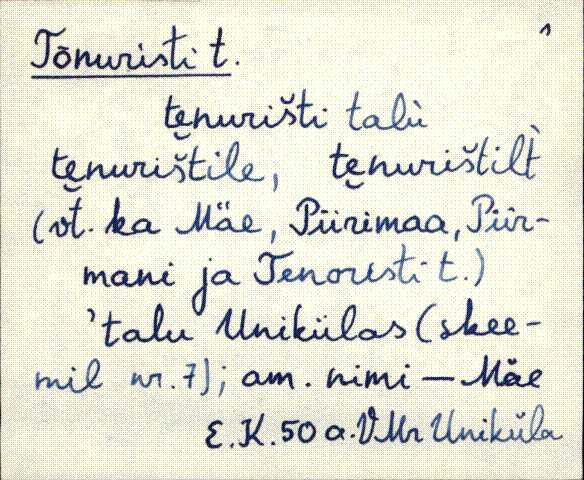 Tõnuristi t.
te̮nurišti talù
te̮nurištile, te̮nurištilt̀
(vt. ka Mäe, Piirimaa, Piir-
mani ja Tenoristi t.)
'talu Unikülas (skee-
mil nr. 7); am. nimi — Mäe
E.K. 50 a. VMr Uniküla